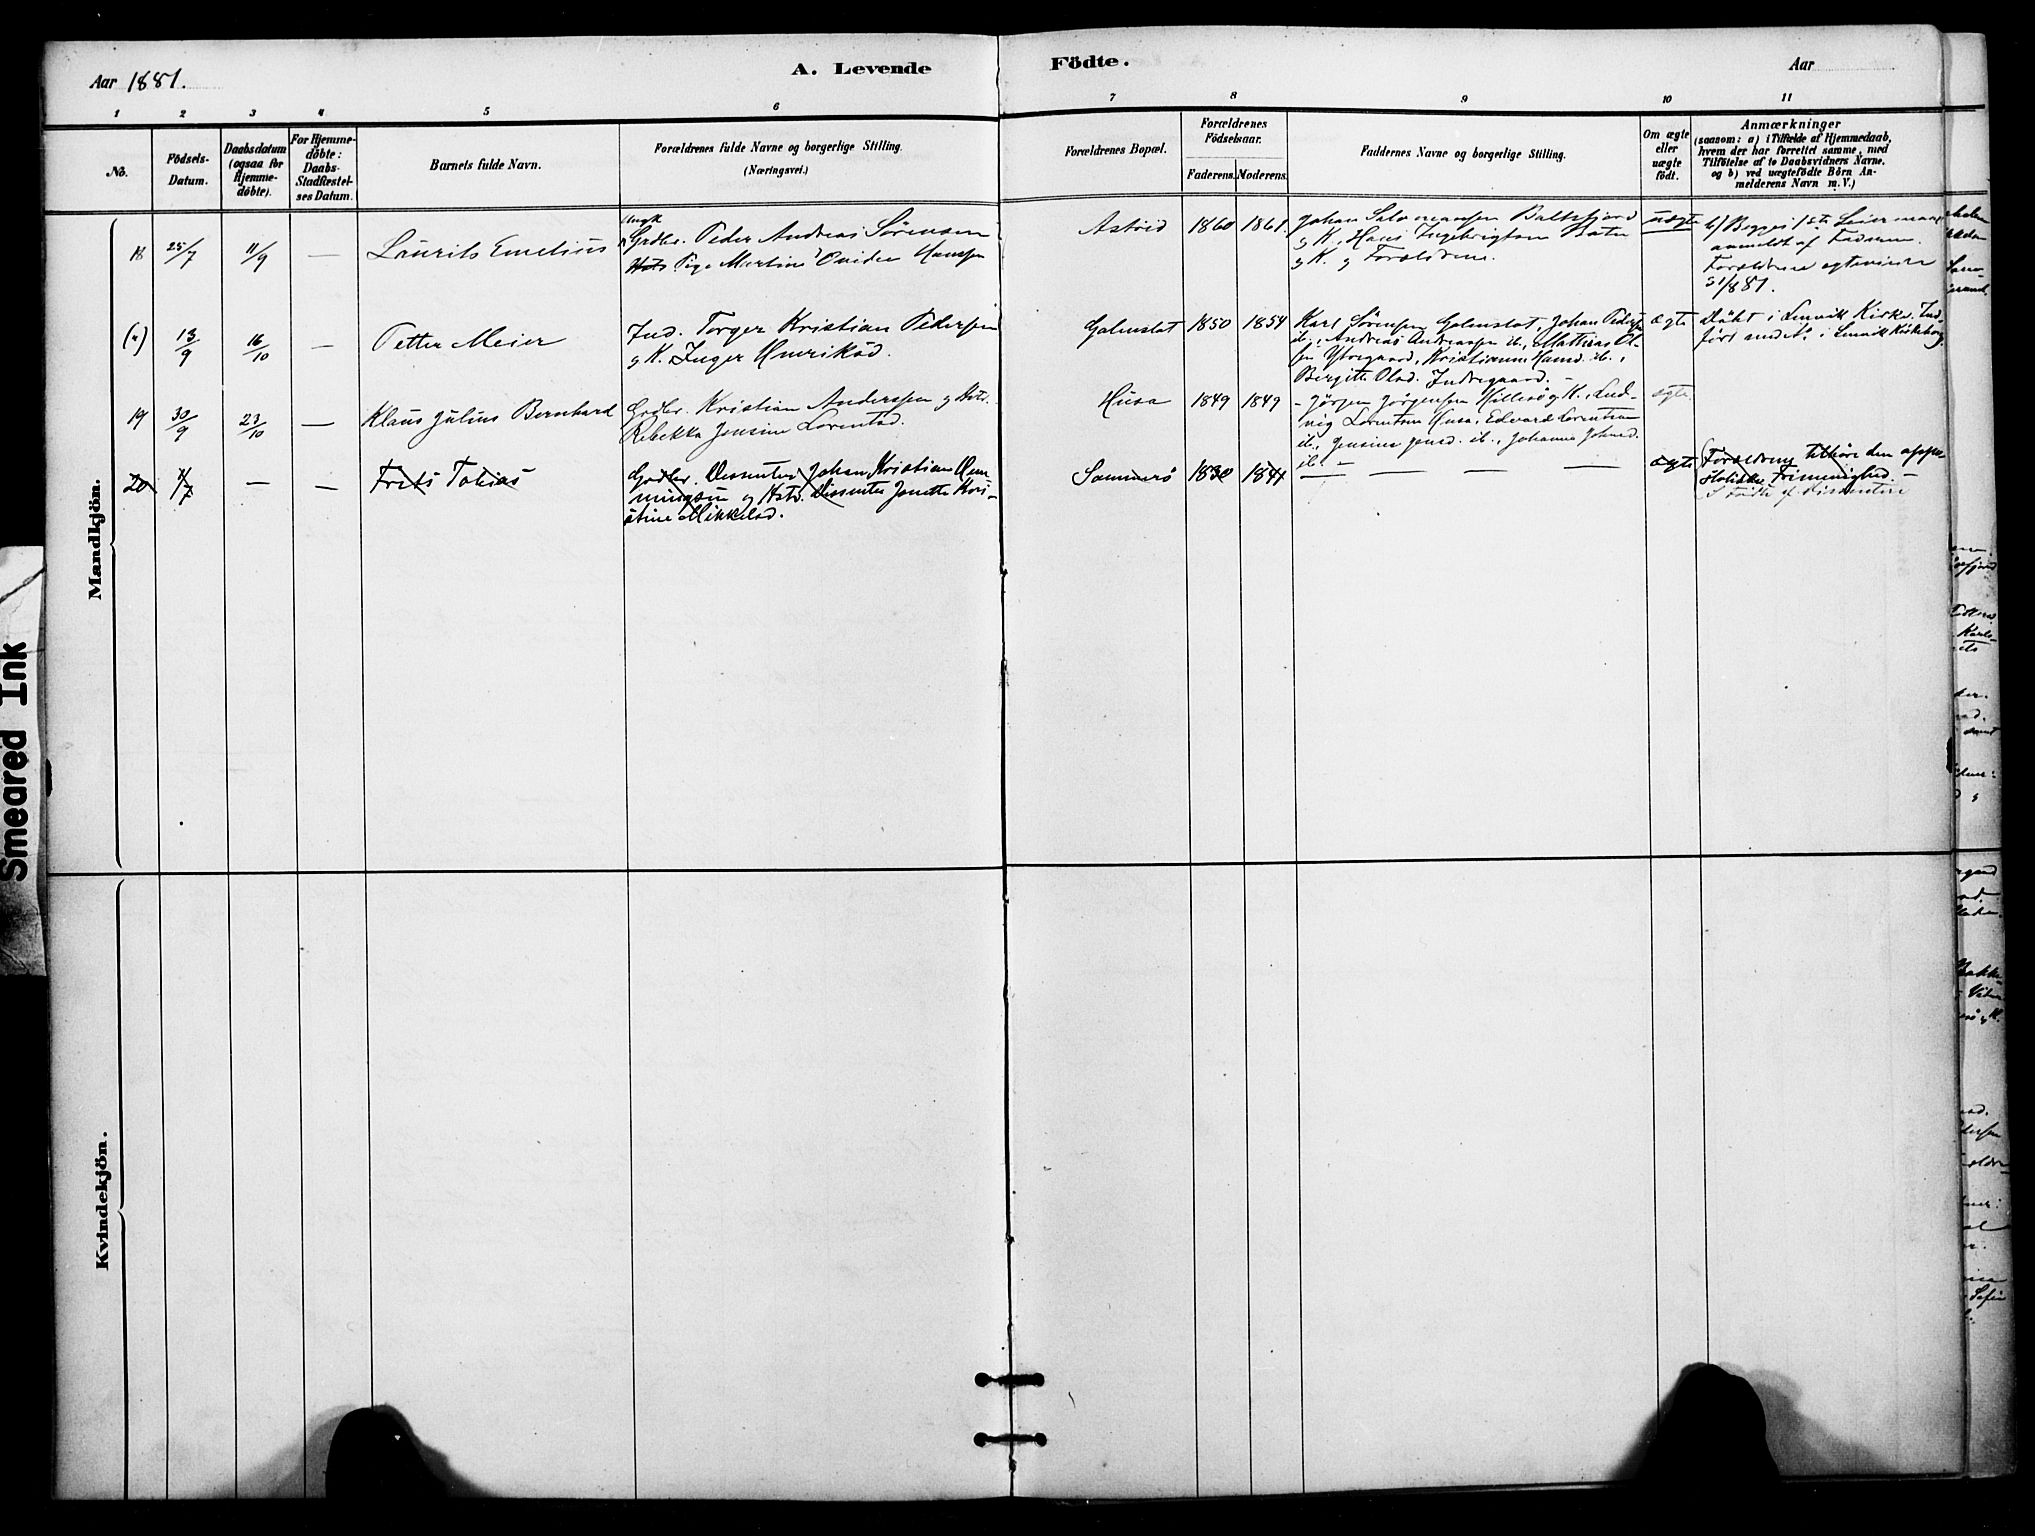 Aar 1881.
A. Levende
Födte.
Aar
1
2
3
4
5
6
7
8
9
10
11
No.
Födsels-
Datum.
Daabsdatum
(ogsaa för
Hjemme-
döbte).
For Hjemme-
döbte:
Daabs-
Stadfæstel-
ses Datum.
Barnets fulde Navn.
Forældrenes fulde Navne og borgerlige Stilling.
(Næringsvei.)
Forældrenes Bopæl.
Forældrenes
Födselsaar.
Faderens.
Moderens.
Faddernes Navne og borgerlige Stilling.
Om ægte
eller
uægte
födt.
Anmærkninger
(saasom: a) i Tilfælde af Hjemmedaab,
hvem der har forrettet samme, med
Tilföielse af to Daabsvidners Navne.
og b) ved uægtefödte Börn An-
melderens Navn m. V.)
Mandkjön.
18 25/7 11/9 — Laurits Emelius
Ungk
Grdbr. Peder Andreas Sörensen
Pige Martine Hanssen
Astrid 1860 1861
Johan Salomonssen Baltsfjord
og K., Hans Ingebrigtsen
og K. og Forældrene.
uægte
b) Begges 1ste Leiermaal
anmeldt af Faderen.
Forældrene egteviede
31/8 81.
13/9 16/10 — Petter Meier
Ind. Torger Kristian Pedersen
og K. Inger Henriksd.
1850 1854
Karl Sörensen Johan Peders
ib., Andreas Andreassen ib., Mathias Ol-
sen Ytregaard, Kristianna Hansd. ib.,
Birgitte Olsd. Indregaard. —
ægte
Döbt i Lenvik Kirke. Ind-
fört med No. i Lenvik Kirkebog.
19 30/9 23/10 — Klaus Julius Bernhard
Grdbr. Kristian Anderssen og Hstr.
Rebekka Jensine Lorentsd.
Husa 1849 1849
Jörgen Jörgensen Hillesö og K., Lud-
vig Lorentsen Husa, Edvard Lorentsen
ib., Jensine Jensd. ib., Johanna Johnsd.
ib. —
ægte
20 /7 — — Frits Tobias
Grdbr. Dissenter Johan Kristian Hen-
ningsen og Hstr. Dissenter Jonette Kri-
stine Mikkelsd.
Sommerö 1830 1841 — — — —
ægte
Forældrene tilhöre den appo-
stoliske Frimenighed. —
S Födte af Dissentere
Kvindekjön.
Smeared Ink